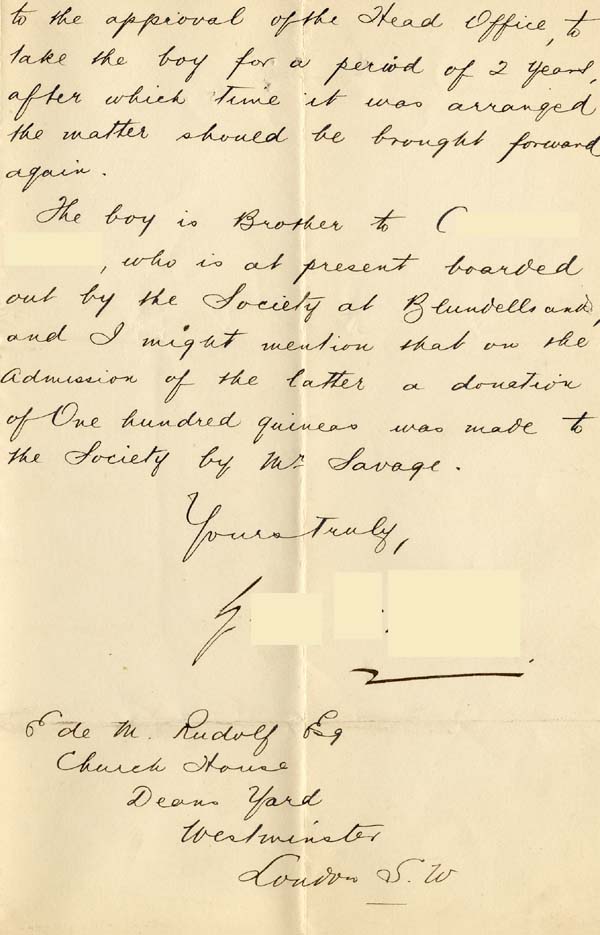 to the approval of the Head Office, to
take the boy for a period of 2 years,
after which time it was arranged
the matter should be brought forward
again.
The boy is Brother to C
, who is at present boarded
out by the Society at Blundellsand,
and I might mention that on the
Admission of the latter a donation
of One hundred guineas was made to
the Society by Mr Savage.
Yours truly,
E de M. Rudolf Esq
Church House
Deans Yard
Westminster
London S.W